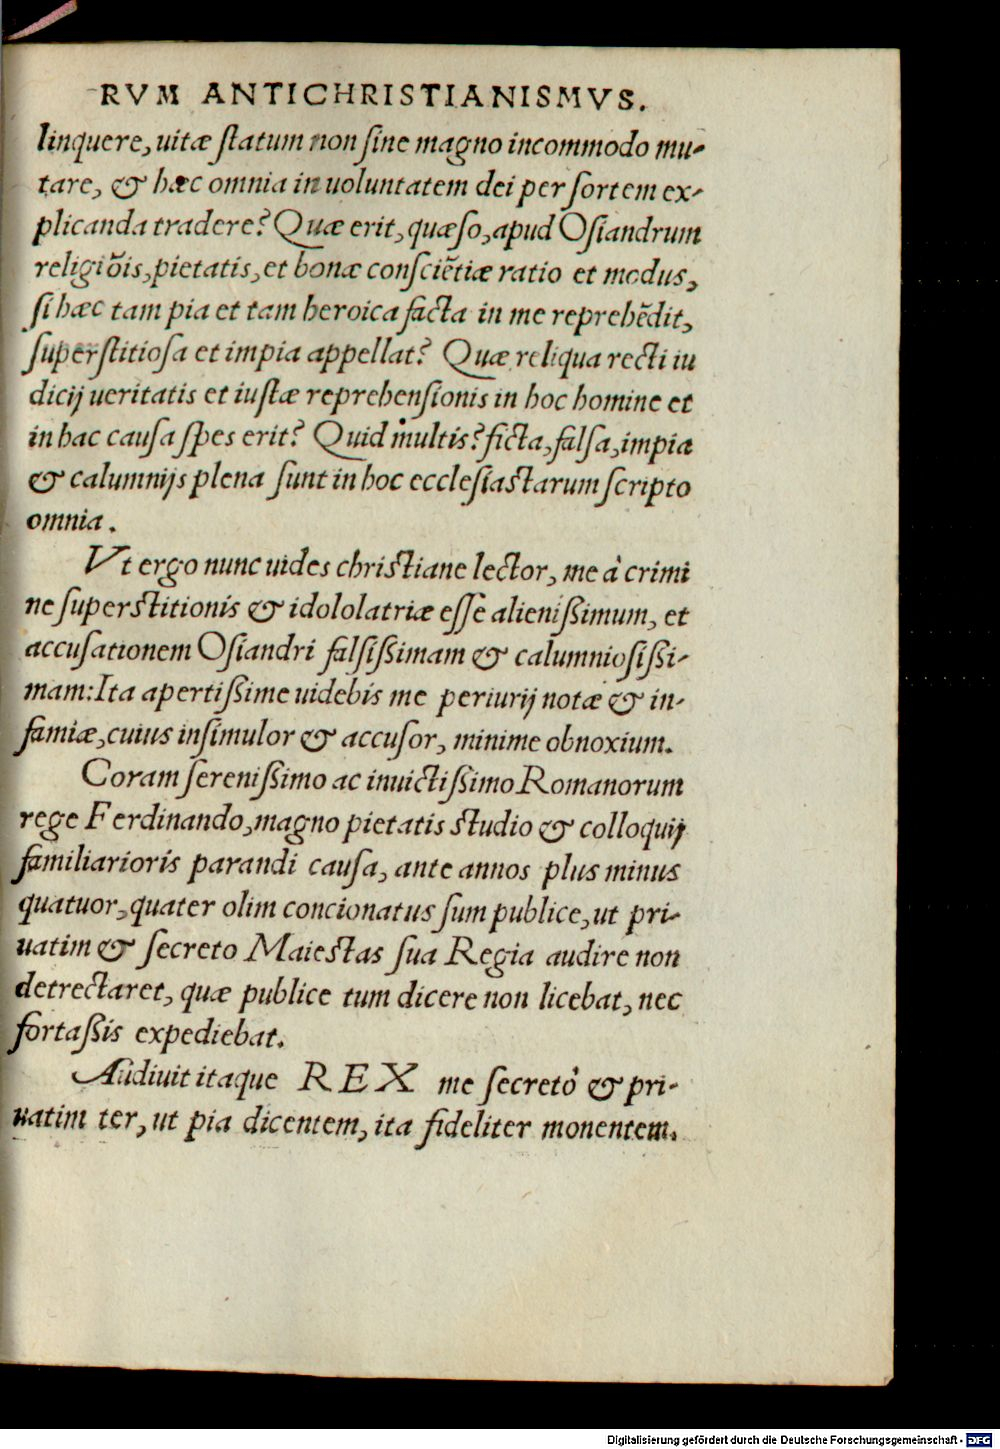 RVM ANTICHRISTIANISMVS.
linquere, uitæ ſtatum non ſine magno incommodo mu-
tare, & hæc omnia in uoluntatem dei per ſortem ex-
plicanda tradere? Quæ erit, quæſo, apud Oſiandrum
religiōis, pietatis, et bonæ conſciētiæ ratio et modus,
ſi hæc tam pia et tam heroica facta in me reprehēdit,
ſuperſtitioſa et impia appellat? Quæ reliqua recti iu
dicij ueritatis et iuſtæ reprehenſionis in hoc homine et
in hac cauſa ſpes erit? Quid multis? ficta, falſa, impia
& calumnijs plena ſunt in hoc eccleſiaſtarum ſcripto
omnia.
Vt ergo nunc uides chriſtiane lector, me à crimi
ne ſuperſtitionis & idololatriæ eſſe alienißimum, et
accuſationem Oſiandri falſißimam & calumnioſißi-
mam: Ita apertißime uidebis me periurij notæ & in-
famiæ, cuius inſimulor & accuſor, minime obnoxium.
Coram ſerenißimo ac inuictißimo Romanorum
rege Ferdinando, magno pietatis ſtudio & colloquij
familiarioris parandi cauſa, ante annos plus minus
quatuor, quater olim concionatus ſum publice, ut pri-
uatim & ſecreto Maieſtas ſua Regia audire non
detrectaret, quæ publice tum dicere non licebat, nec
fortaßis expediebat.
Audiuit itaque REX me ſecretò & pri-
uatim ter, ut pia dicentem, ita fideliter monentem.
Digitalisierung gefördert durch die Deutsche Forschungsgemeinschaft - DFG